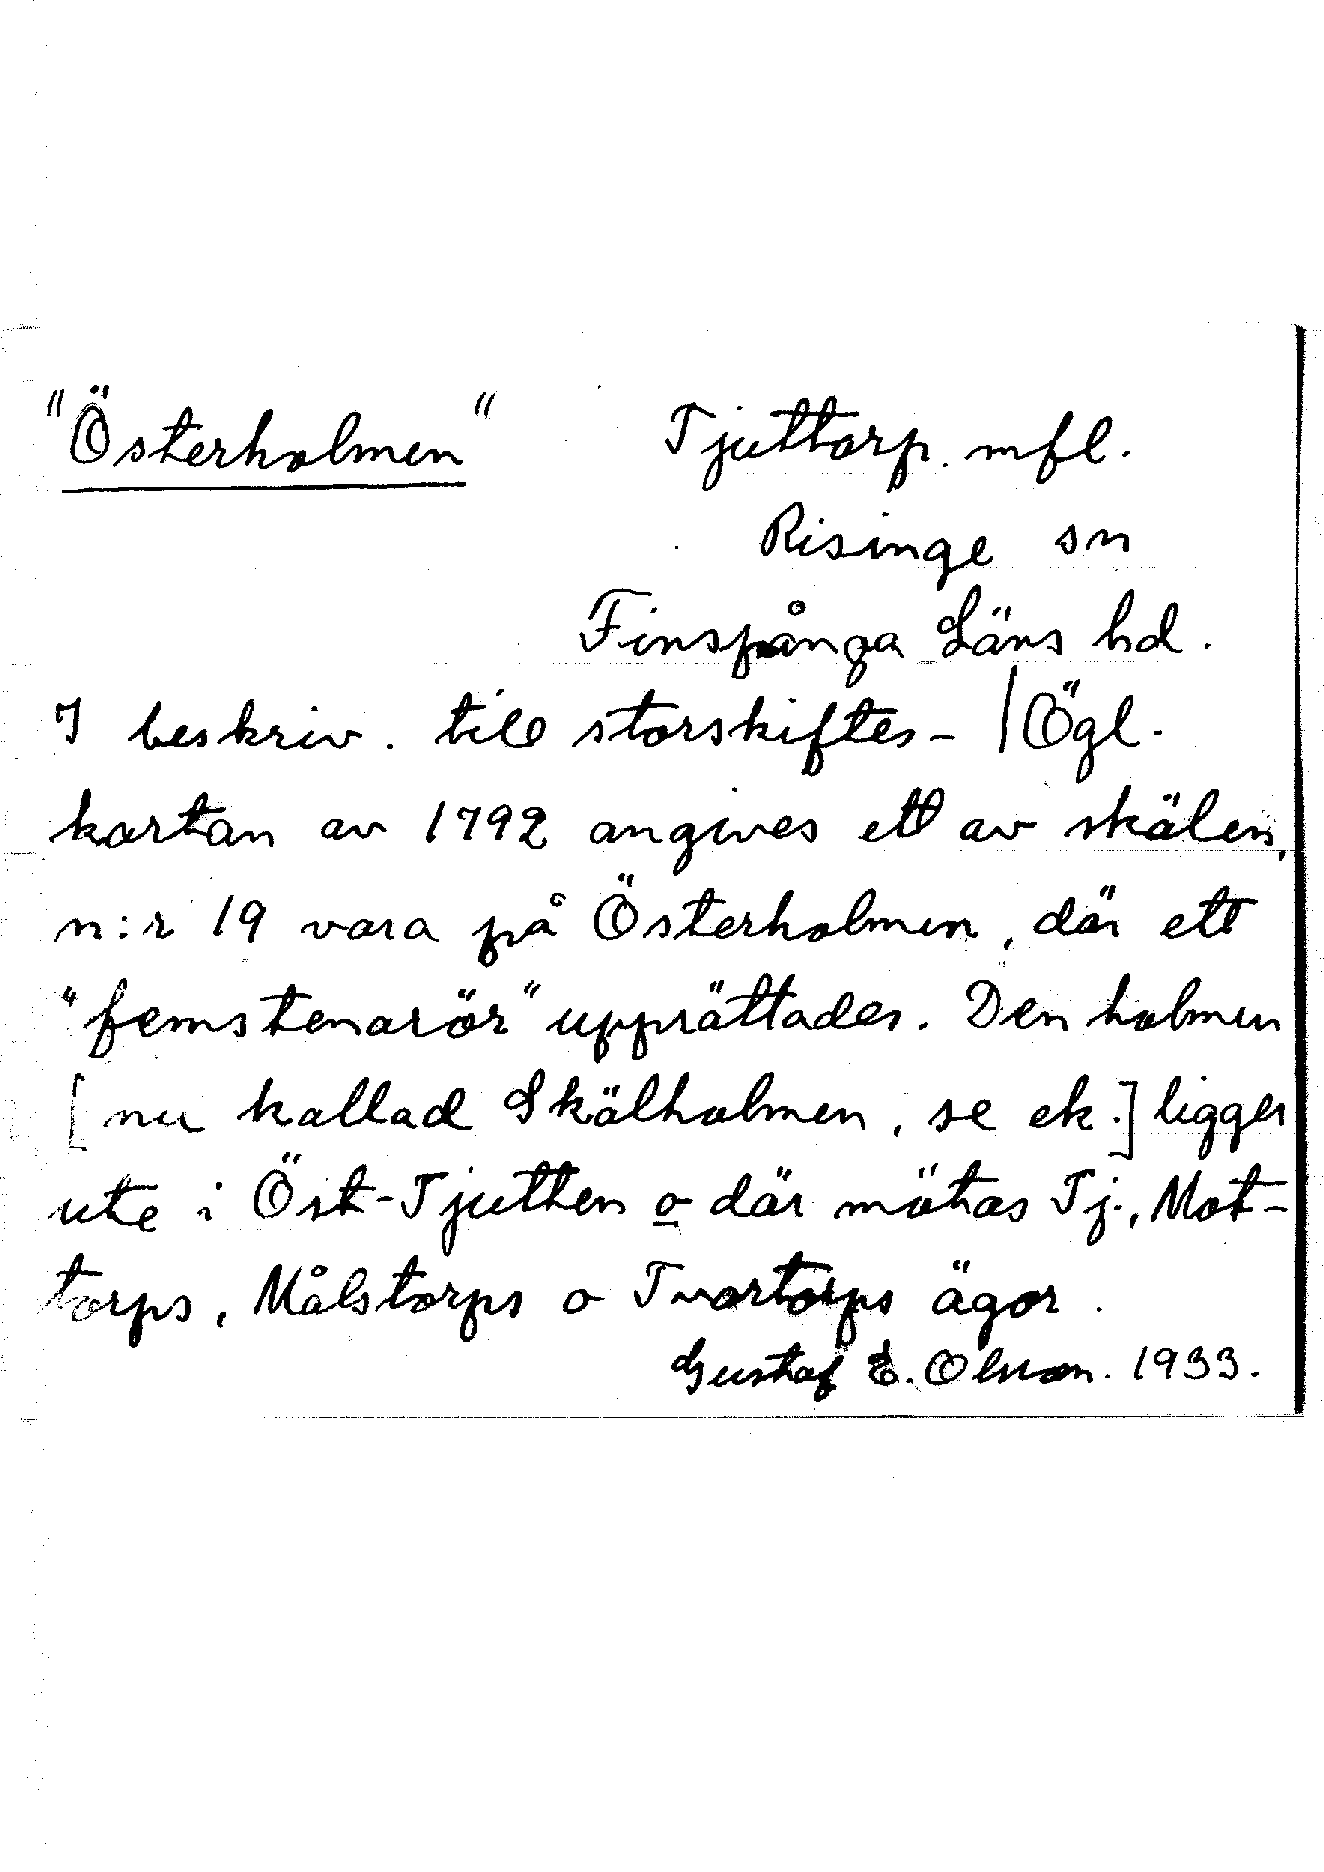 "Österholmen" Tjuttorp. mfl.
Risinge sn
Finspånga Läns hd.
I beskriv. till storskiftes- | Ögl.
kartan av 1792 angives ett av skälen,
n:r 19 vara på Österholmen, där ett
"femstenarör" upprättades. Den holmen
[nu kallad Skälholmen, se ek.] ligger
ute i Öst-Tjutten o där mötas Tj., Mot-
torps, Målstorps o Tvartorps ägor.
Gustaf E. Olsson. 1933.